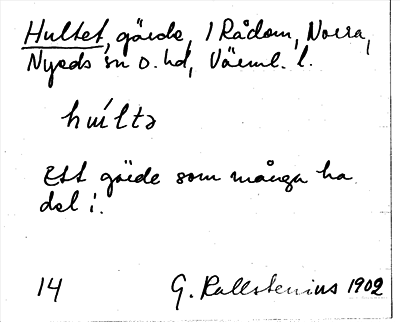 Hultet, gärde, 1 Rådom, Norra,
Nyeds sn o. hd, Värml. l.
hu̍ltə
Ett gärde som många ha
del i.
14 G. Kallstenius 1902